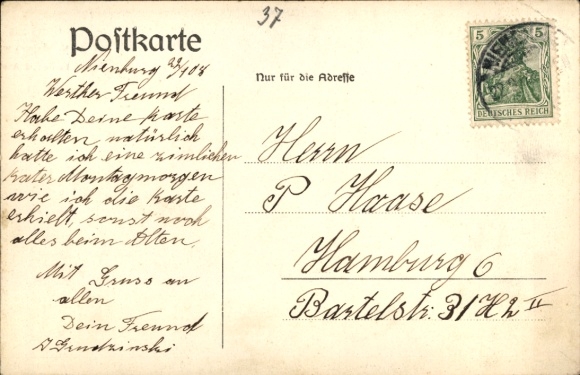 37
Postkarte
Nienburg
Werther Freund
Habe Deine Karte
erhalten natürlich
hatte ich eine zimlichen
kater Montagmorgen
wie ich die Karte
erhielt, sonst noch
alles beim Alten.
Mit Gruss an
allen
Dein Freund
J Grudzinski
Nur für die Adresse
5 5
DEUTSCHES REICH
Herrn
P Haase
Hamburg 6
Bartelstr. 31 H 2 II